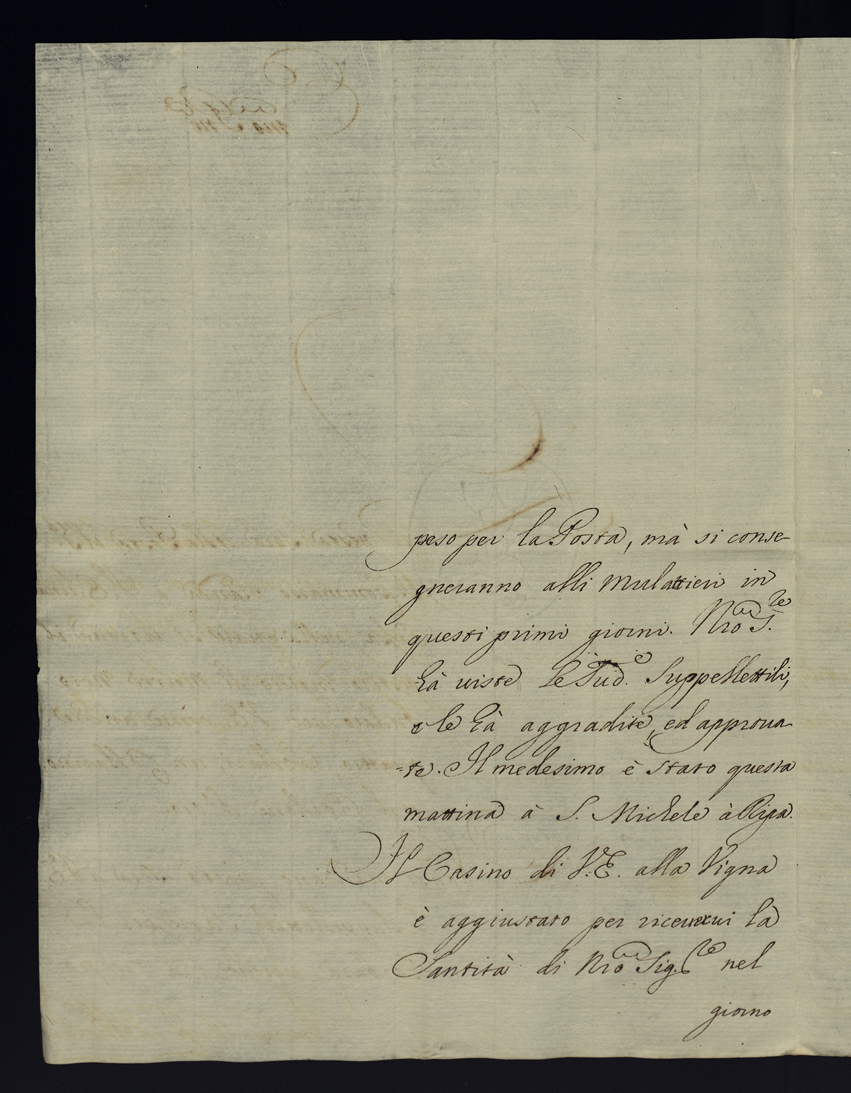 peso per la Posta, mà si conse-
gneranno alli Mulattieri in
questi primi giorni. Nro S.re
hà viste le Sud.e Suppellettili,
e le hà aggradite, ed approva-
-te. Il medesimo è stato questa
mattina à S. Michele à Ripa.
Il Casino di V.E. alla Vigna
è aggiustato per ricevervi la
Santità di Nro Sig.re nel
giorno